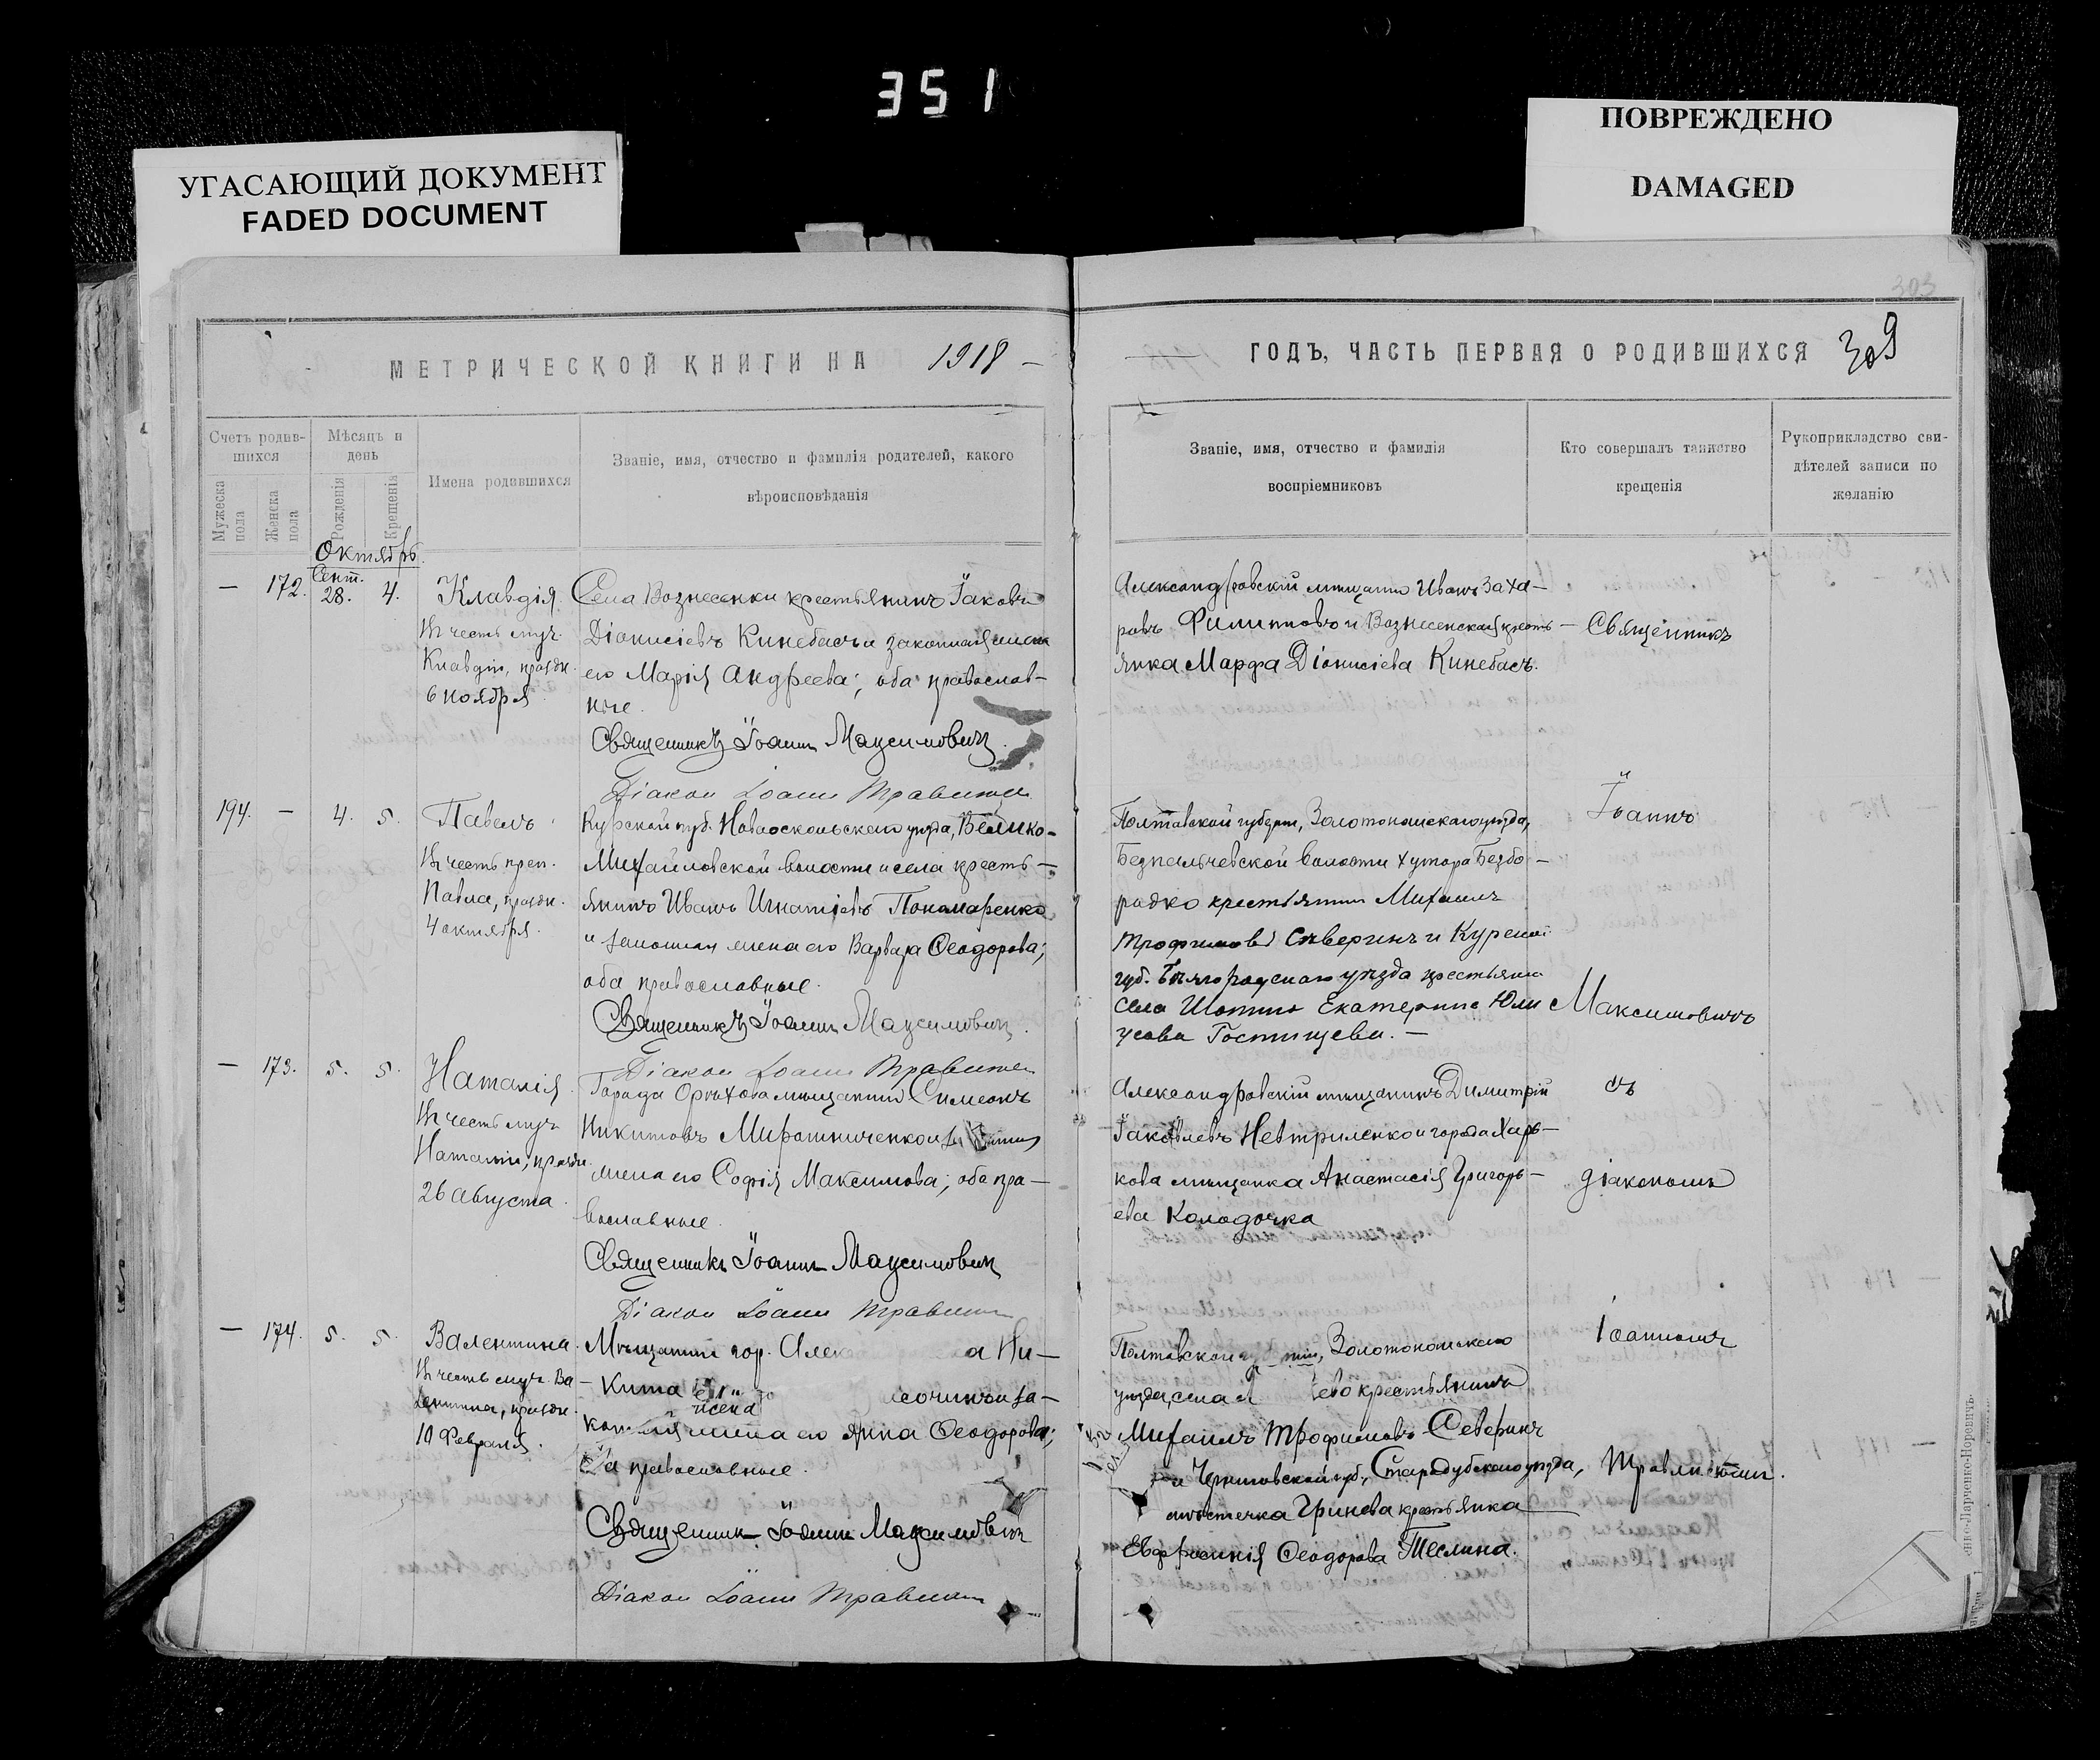 351
УГАСАЮЩИЙ ДОКУМЕНТ
FADED DOCUMENT
ПОВРЕЖДЕНО
DAMAGED
303
МЕТРИЧЕСКОЙ КНИГИ НА 1918 —
ГОДЪ, ЧАСТЬ ПЕРВАЯ О РОДИВШИХСЯ 309
Счетъ родив-
шихся
Мужеска пола
Женска пола
Мѣсяцъ и
день
Рожденія
Крещенія
Имена родившихся
Званіе, имя, отчество и фамилія родителей, какого
вѣроисповѣданія
Званіе, имя, отчество и фамилія
воспріемниковъ
Кто совершалъ таинство
крещенія
Рукоприкладство сви-
дѣтелей записи по
желанію
Октябрь
— 172. Сент. 28. 4.
Клавдія
Въ честь муч.
Клавдіи, праздн.
6 ноября
Села Вознесенки крестьянинъ Іаковъ
Діонисіевъ Кинебасъ и законная жена
его Марія Андреева; оба православ-
ные.
Священникъ Іоаннъ Максимовичъ
Діакон Іоанн
Александровскій мѣщанинъ Иванъ Заха-
ровъ Филипповъ и Вознесенская кресть-
янка Марфа Діонисіева Кинебасъ.
Священникъ
194. — 4. 5.
Павелъ
Въ честь преп.
Павла, праздн.
4 октября.
Курской губ. Новооскольскаго уѣзда, Велико-
Михайловской волости и села кресть-
янинъ Иванъ Игнатіевъ Пономаренко
и законная жена его Варвара Ѳеодорова;
оба православные.
Священникъ Іоаннъ Максимовичъ.
Діакон Іоанн
Полтавской губерніи, Золотоношскаго уѣзда,
Безпальчевской волости хутора Безбо-
родко крестьянинъ Михаилъ
Трофимовъ Сѣверинъ и Курской
губ. Бѣлгородскаго уѣзда крестьянка
села Екатерина
Гостищева. —
Іоаннъ
Максимовичъ
— 173. 5. 5.
Наталія
Въ честь муч.
Наталіи, праздн.
26 Августа.
Города Орѣхова мѣщанинъ Симеонъ
Никитовъ Мирошниченко и
жена его Софія Максимова; оба пра-
вославные.
Священникъ Іоаннъ Максимовичъ
Діакон Іоанн
Александровскій мѣщанинъ Димитрій
Іаковлевъ Нетриленко и города Харь-
кова мѣщанка Анастасія Григорь-
ева Колодочка
съ
діакономъ
— 174. 5. 5.
Валентина.
Въ честь муч. Ва-
лентины, праздн.
10 Февраля.
Мѣщанинъ гор. Алек а Ни-
кита и за-
жена его Анна Ѳеодорова;
православные.
Священникъ Іоаннъ Максимовичъ
Діакон Іоанн
Полтавской Золотоношскаго
уѣзда, села крестьянинъ
Михаилъ Трофимовъ Северинъ
и Черниговской губ., Стародубскаго уѣзда,
мѣстечка Гринева крестьянка
Евфросинія Ѳеодорова Теслина.
Іоанномъ